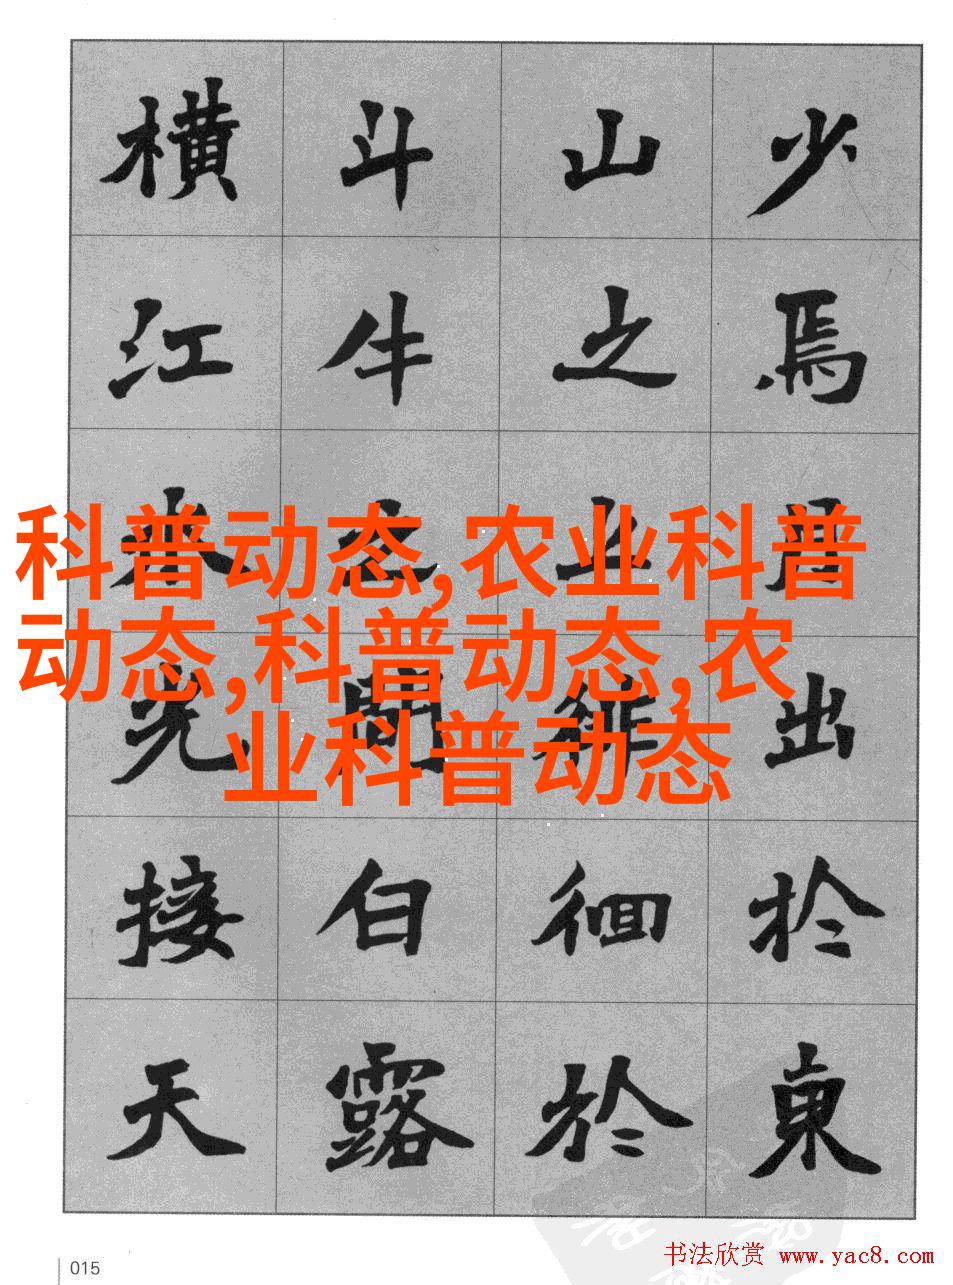 少焉月出於東
山之上徘徊於
斗牛之間白露
橫江水光接天
科普动态,农业科普
动态,科普动态,农
业科普动态
015
书法欣赏 www.yac8.com